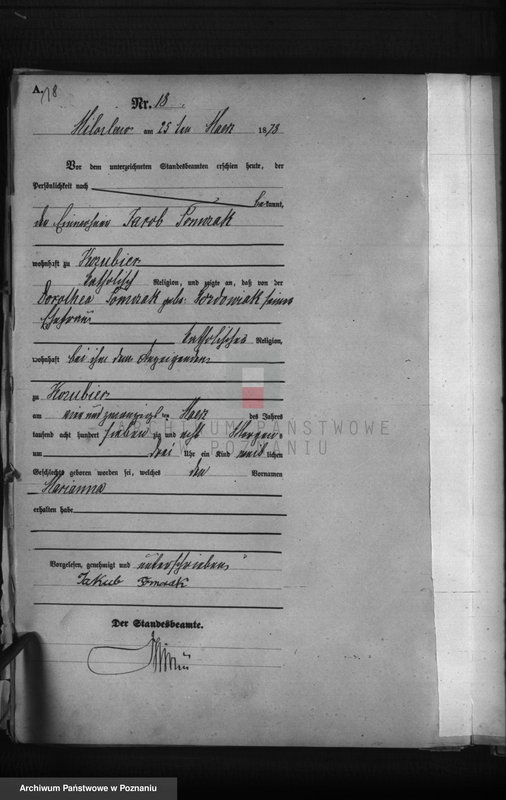 A. 18
Nr. 18.
am 25 ten Maerz 1878
Vor dem unterzeichneten Standesbeamten erschien heute, der
Persönlichkeit nach
bekannt,
der Einwohner Jacob Tomczak
wohnhaft zu
katholisch Religion, und zeigte an, daß von der
Dorothea Tomczak geb. seiner
Ehefrau
katholischer Religion,
wohnhaft bei ihm dem Anzeigenden
zu
am ein und zwanzigsten Maerz des Jahres
tausend acht hundert siebenzig und acht Morgens
um drei Uhr ein Kind weiblichen
Geschlechts geboren worden sei, welches den Vornamen
Marianna
erhalten habe
Vorgelesen, genehmigt und unterschrieben
Jakub Tomczak
Der Standesbeamte.
ARCHIWUM PAŃSTWOWE
W POZNANIU
Archiwum Państwowe w Poznaniu